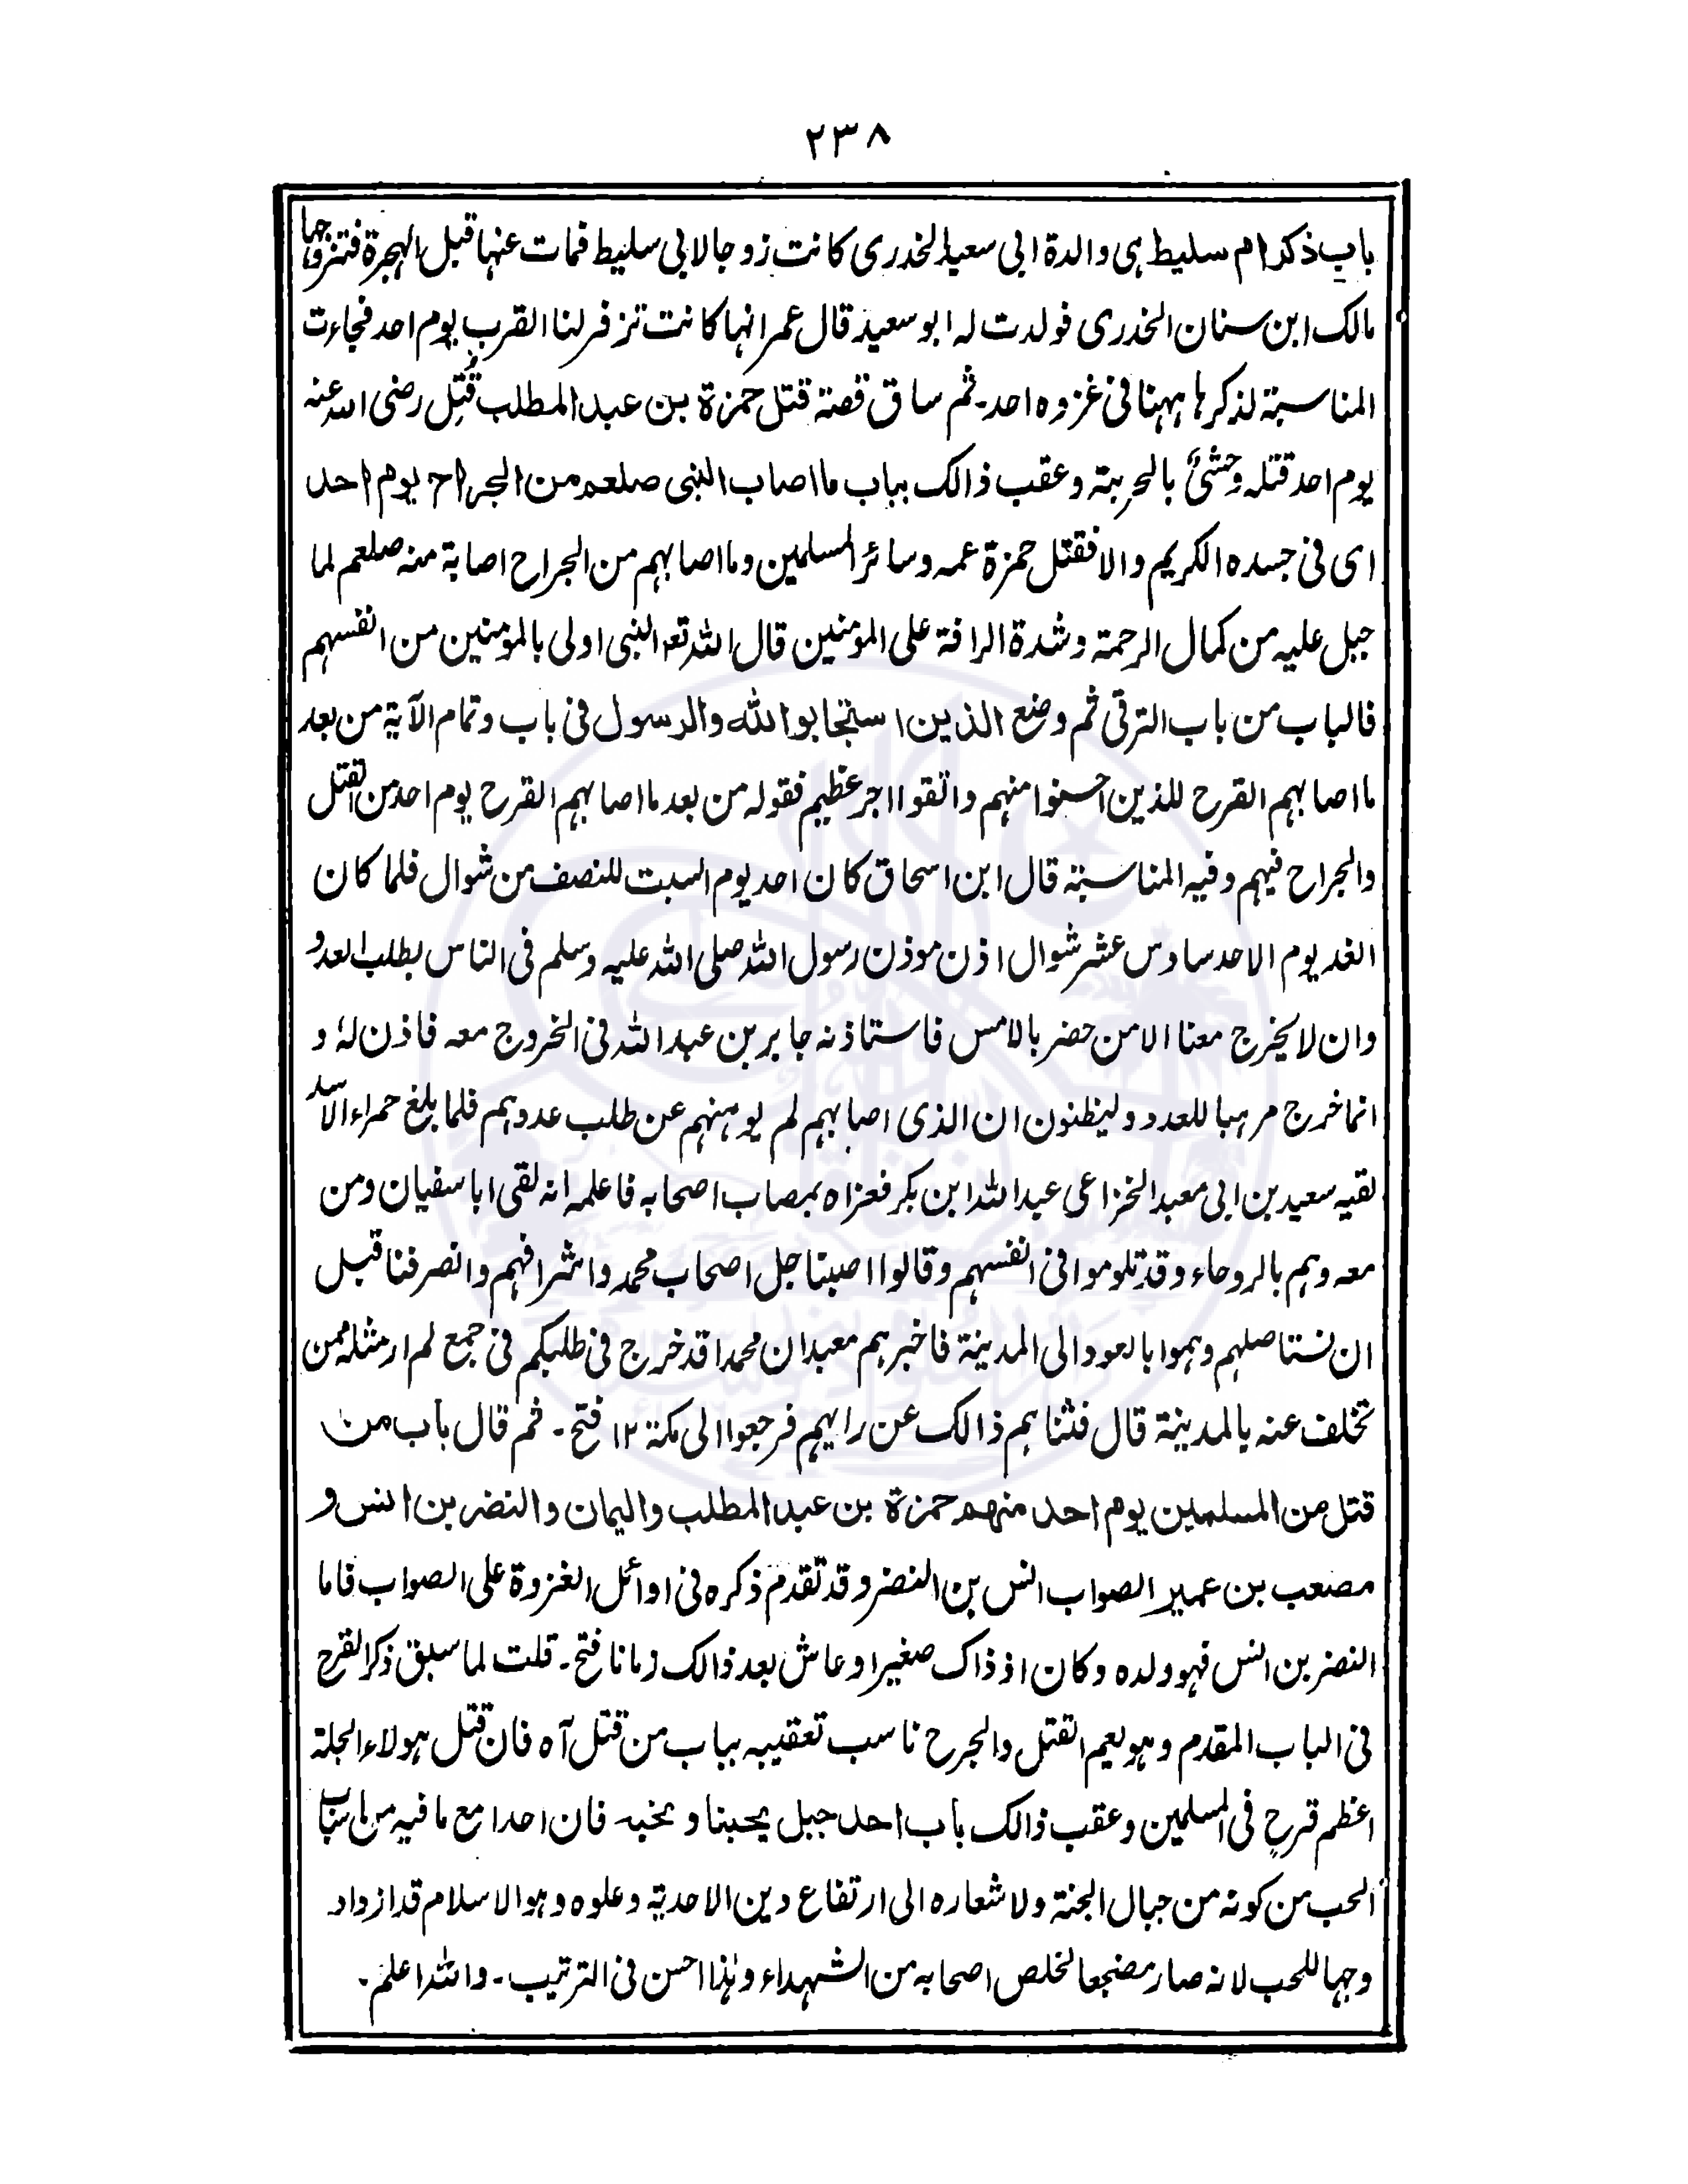 ٢٣٨
باب ذكر ام سليط هی والدة ابی سعید الخدری كانت زوجا لابی سليط فمات عنها قبل الهجرة فتزوجها
مالک ابن سنان الخدری فولدت له ابو سعید قال عمر انها كانت تزفر لنا القرب یوم احد فجاءت
المناسبة لذكرها ههنا فی غزوه احد۔ ثم ساق قصة قتل حمزة بن عبد المطلب قُتِل رضی الله عنه
یوم احد قتله وحشیٌ بالحربة وعقب ذالک بباب ما اصاب النبی صلعم من الجراح یوم احد
ای فی جسده الكریم والا فقتل حمزة عمه وسائر المسلمین وما اصابهم من الجراح اصابة منه صلعم لما
جبل علیه من كمال الرحمة وشدة الرافة علی المومنین قال الله تعه النبی اولی بالمومنین من انفسهم
فالباب من باب الترقی ثم وضع الذین استجابوا لله والرسول فی باب وتمام الآیة من بعد
ما اصابهم القرح للذین احسنوا منهم واتقوا اجر عظیم فقوله من بعد ما اصابهم القرح یوم احد من القتل
والجراح فیهم وفیه المناسبة قال ابن اسحاق كان احد یوم السبت للنصف من شوال فلما كان
الغد یوم الاحد سادس عشر شوال اذن موذن رسول الله صلی الله علیه وسلم فی الناس بطلب العدو
وان لا یخرج معنا الا من حضر بالامس فاستاذنه جابر بن عبد الله فی الخروج معه فاذن لهٗ و
انما خرج مرهبا للعدو ولیظنون ان الذی اصابهم لم یوهنهم عن طلب عدوهم فلما بلغ حمراء الاسد
لقیه سعید بن ابی معبد الخزاعی عبد الله ابن بكر فعزاه بمصاب اصحابه فاعلمه انه لقی ابا سفیان ومن
معه وهم بالروحاء وقد تلوموا فی انفسهم وقالوا اصبنا جل اصحاب محمد واشرافهم وانصرفنا قبل
ان نستاصلهم وهموا بالعود الی المدینة فاخبرهم معبد ان محمدا قد خرج فی طلبكم فی جمع لم ار مثله ممن
تخلف عنه بالمدینة قال فثناهم ذالک عن رایهم فرجعوا الی مكة ١٢ فتح۔ ثم قال باب من
قتل من المسلمین یوم احد منهم حمزة بن عبد المطلب والیمان والنضر بن انس و
مصعب بن عمیر الصواب انس بن النضر وقد تقدم ذكره فی اوائل الغزوة علی الصواب فاما
النضر بن انس فهو ولده وكان اذ ذاک صغیرا وعاش بعد ذالک زمانا فتح۔ قلت لما سبق ذكر القرح
فی الباب المقدم وهو یعم القتل والجرح ناسب تعقیبه بباب من قتل آه فان قتل هولاء الجلة
اعظم قرحٍ فی المسلمین وعقب ذالک باب احد جبل یحبنا ونحبه فان احدا مع ما فیه من اسباب
الحب من كونه من جبال الجنة ولاشعاره الی ارتفاع دین الاحدیة وعلوه وهو الاسلام قد ازداد
وجها للحب لانه صار مضجعا لخلص اصحابه من الشهداء وهٰذا احسن فی الترتیب۔ والله اعلم۔